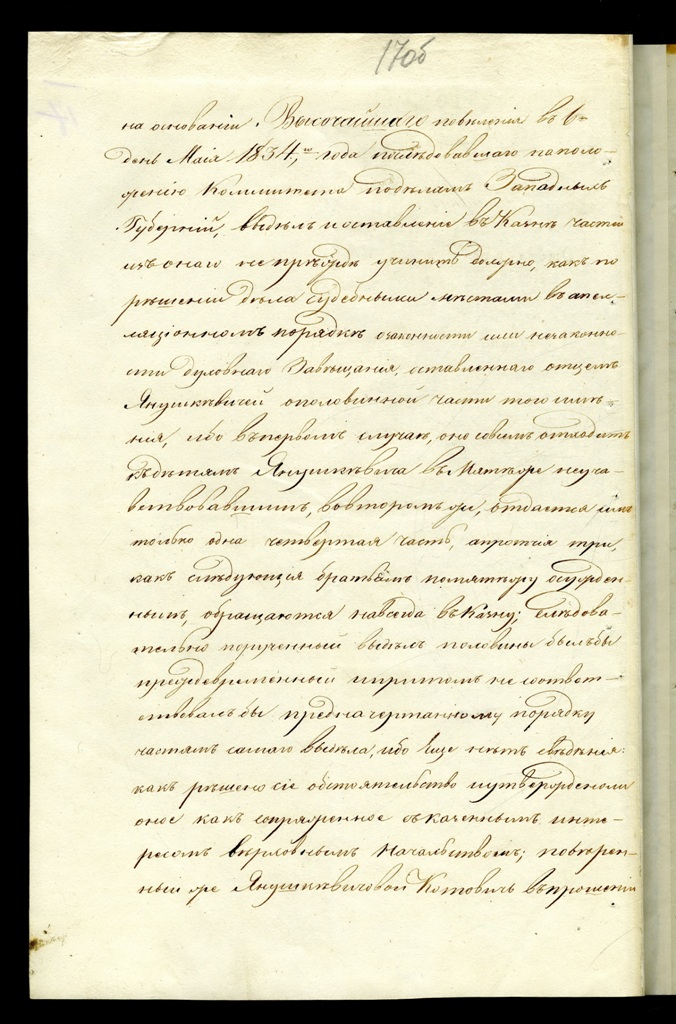 170б
на основаніи Высочайшаго повеленія въ 6й
день Маія 1834,го года послѣдовавшаго пополо-
женію Коммитета подѣламъ Западныхъ
Губерній, выдѣлъ и оставленіе въ Казнѣ частей
изъ онаго не прежде учинить должно, какъ по
рѣшеніи дѣла судебными мѣстами въ апел-
ляціонномъ порядкѣ озаконности или незаконно-
сти духовнаго Завѣщанія, оставленнаго отцемъ
Янушкѣвичей ополовинной части того имѣ-
нія, ибо въпервомъ случаѣ, оно совсемъ отходитъ
къ дѣтямъ Янушкѣвича въ Мятеже неуча-
вствовавшимъ, вовторомъ же, отдается имъ
только одна четвертая часть, апротчія три,
какъ слѣдующія братьямъ помятежу осужден-
нымъ, обращаются навсегда въ Казну; слѣдова-
тельно порученный выдѣлъ половины былъбы
преждевременный ипритомъ не соответ-
ствовалъбы предначертанному порядку
частямъ самаго выдѣла, ибо еще нѣтъ свѣдѣнія:
какъ рѣшено сіе обстоятельство иутверждено ли
оное какъ сопряженное съ казеннымъ инте-
ресомъ верховнымъ Начальствомъ; повѣрен-
ный же Янушкѣвичевой Котовичъ въ прошеніи